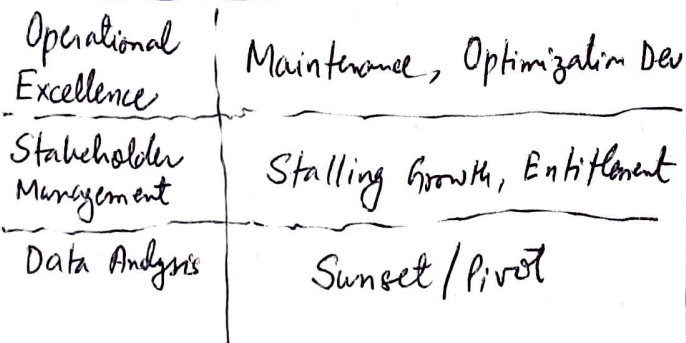 Operational
Excellence
Maintenance, Optimization Dev
Stakeholder
Management
Stalling Growth, Entitlement
Data Analysis
Sunset/Pivot